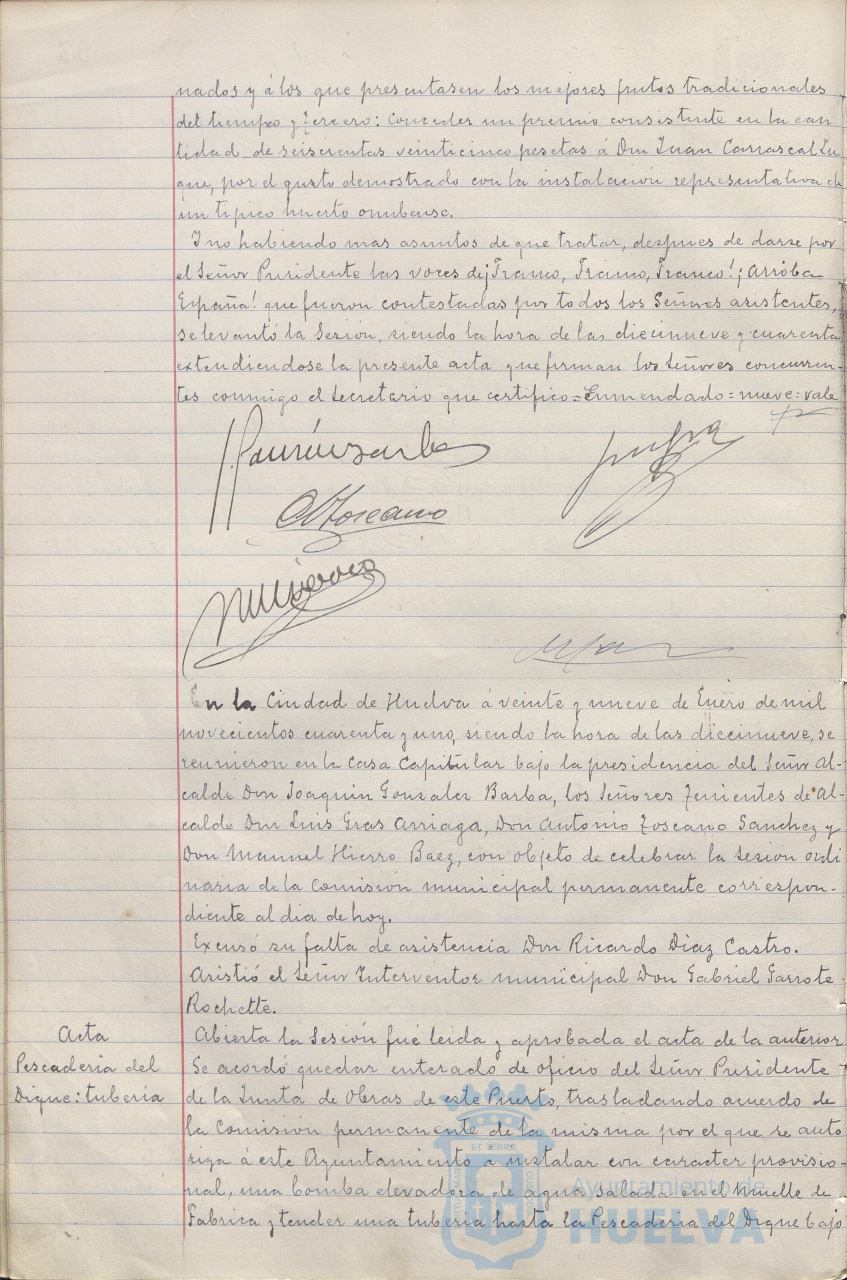 nados y á los que presentasen los mejores frutos tradicionales
del tiempo y tercero: Conceder un premio consistente en la can
tidad de seiscientas veinticinco pesetas á Don Juan Carrascal Lu
que, por el gusto demostrado con la instalación representativa de
un tipico huerto onubense.
Y no habiendo mas asuntos de que tratar, despues de darse por
el Señor Presidente las voces de ¡Franco, Franco, Franco! ¡Arriba
España! que fueron contestadas por todos los Señores asistentes,
se levantó la Sesión, siendo la hora de las diecinueve y cuarenta
extendiendose la presente acta que firman los Señores concurren-
tes conmigo el Secretario que certifico = Enmendado = nueve: vale
Toscano
En la Ciudad de Huelva á veinte y nueve de Enero de mil
novecientos cuarenta y uno, siendo la hora de las diecinueve, se
reunieron en la Casa Capitular bajo la presidencia del Señor Al-
calde Don Joaquin Gonzalez Barba, los Señores Tenientes de Al-
calde Don Luis Gras Arriaga, Don Antonio Toscano Sanchez y
Don Manuel Hierro Baez, con objeto de celebrar la sesion ordi
naria de la Comisión municipal permanente correspon-
diente al dia de hoy.
Excusó su falta de asistencia Don Ricardo Diaz Castro.
Asistió el Señor Interventor municipal Don Gabriel Garrote
Rochette.
Acta
Abierta la Sesión fué leida y aprobada el acta de la anterior
Pescaderia del
Dique: tuberia
Se acordó quedar enterado de oficio del Señor Presidente
de la Junta de Obras de este Puerto, trasladando acuerdo de
la Comisión permanente de la misma por el que se auto
riza á este Ayuntamiento a instalar con caracter provisio-
nal, una bomba elevadora de agua salada en el muelle de
Fabrica y tender una tuberia hasta la Pescaderia del Dique bajo
Ayuntamiento de
HUELVA